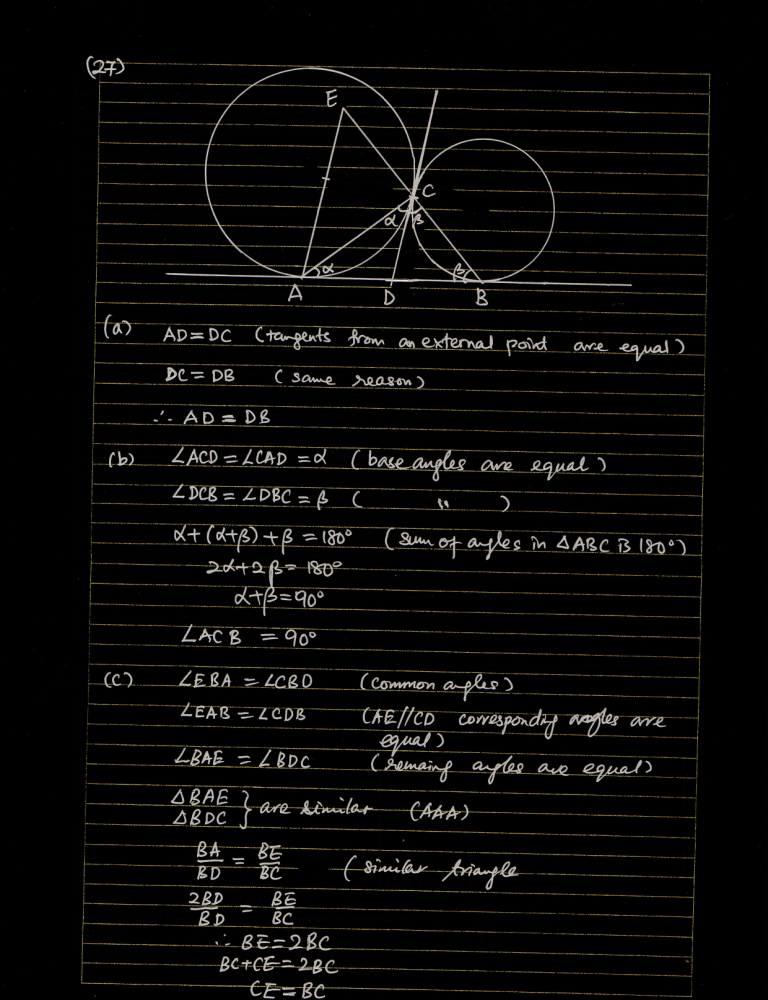 (27)
E
C
α β
α β
A D B
(a) AD=DC (tangents from an external point are equal)
DC = DB (same reason)
∴ AD = DB
(b) ∠ACD = ∠CAD = α (base angles are equal)
∠DCB = ∠DBC = β ( " )
α+(α+β)+β = 180° (sum of angles in ΔABC is 180°)
2α+2β = 180°
α+β=90°
∠ACB = 90°
(c) ∠EBA = ∠CBD (common angles)
∠EAB = ∠CDB (AE//CD corresponding angles are
equal)
∠BAE = ∠BDC (remaing angles are equal)
ΔBAE
ΔBDC } are similar (AAA)
BA/BD = BE/BC (similar triangle
2BD/BD = BE/BC
∴ BE=2BC
BC+CE=2BC
CE=BC